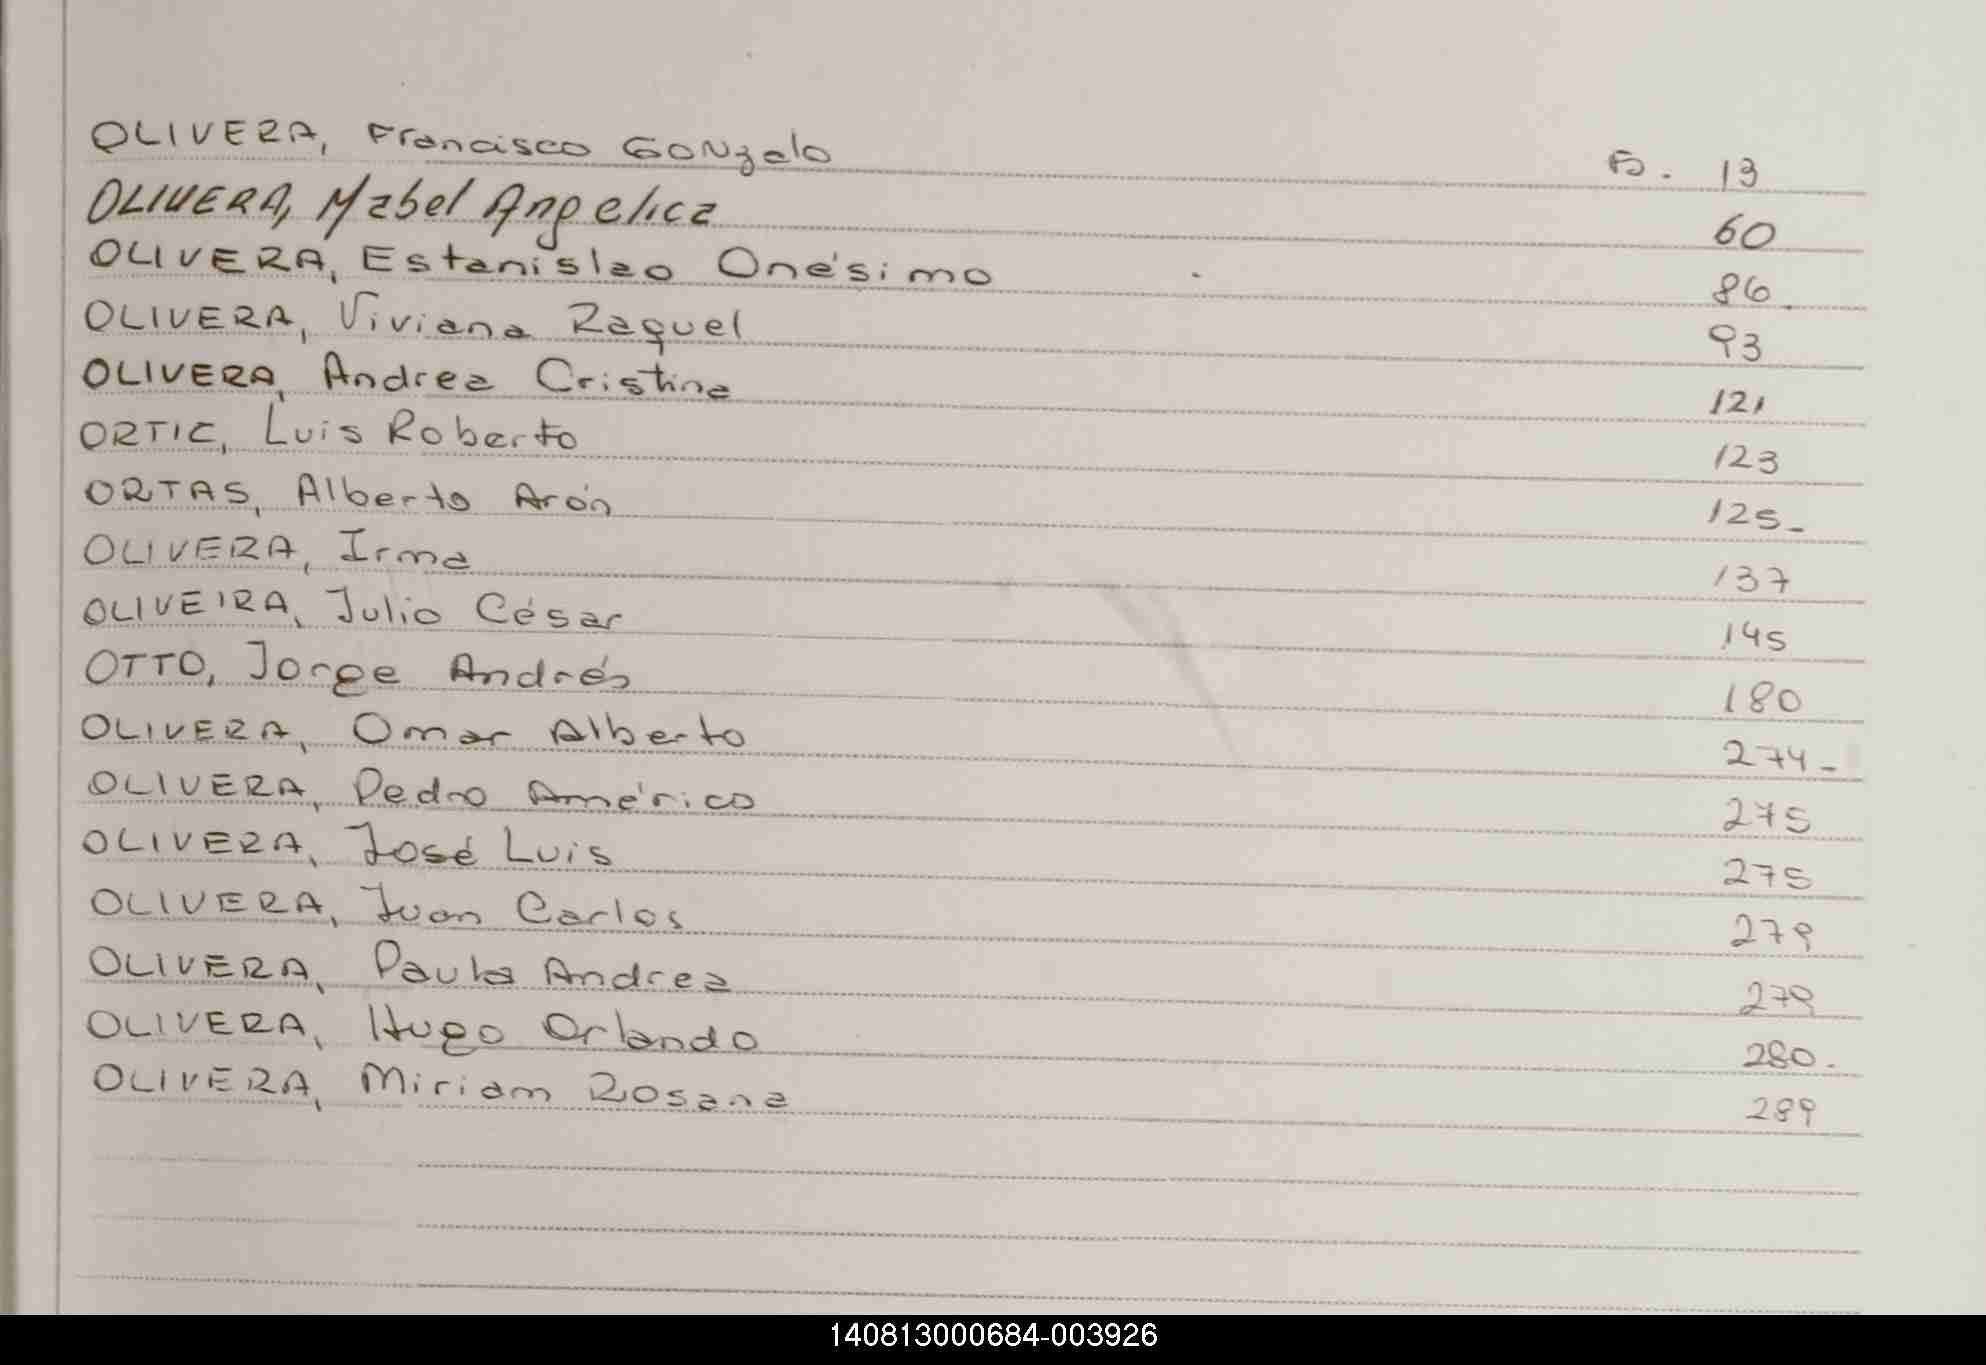 OLIVERA, Francisco GONzalo Fs. 13
OLIVERA, Mabel Angelica 60
OLIVERA, Estanislao Onésimo 86
OLIVERA, Viviana Raquel 93
OLIVERA, Andrea Cristina 121
ORTIC, Luis Roberto 123
ORTAS, Alberto Arón 125-
OLIVERA, Irma 137
OLIVEIRA, Julio César 145
OTTO, Jorge Andrés 180
OLIVERA, Omar Alberto 274-
OLIVERA, Pedro Américo 275
OLIVERA, José Luis 275
OLIVERA, Juan Carlos 279
OLIVERA, Paula Andrea 279
OLIVERA, Hugo Orlando 280.
OLIVERA, Miriam Rosana 289
140813000684-003926